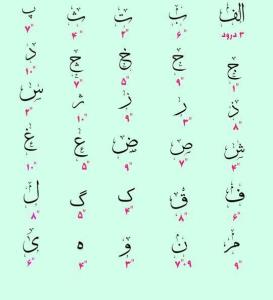 الف ب ت ث پ
۳ درود ۶" ۲" ۴" ۷"
ج ح خ چ ذ
۱" ۹" ۵" ۷" ۱۰"
د ر ز ژ س
۸" ۳" ۹" ۱۰" ۲"
ش ص ض ع غ
۴" ۷" ۹" ۵" ۱۰"
ف ق ک گ ل
۶" ۸" ۴" ۵" ۸"
م ن و ه ی
۹" ۹۰۷ ۳" ۵" ۶"